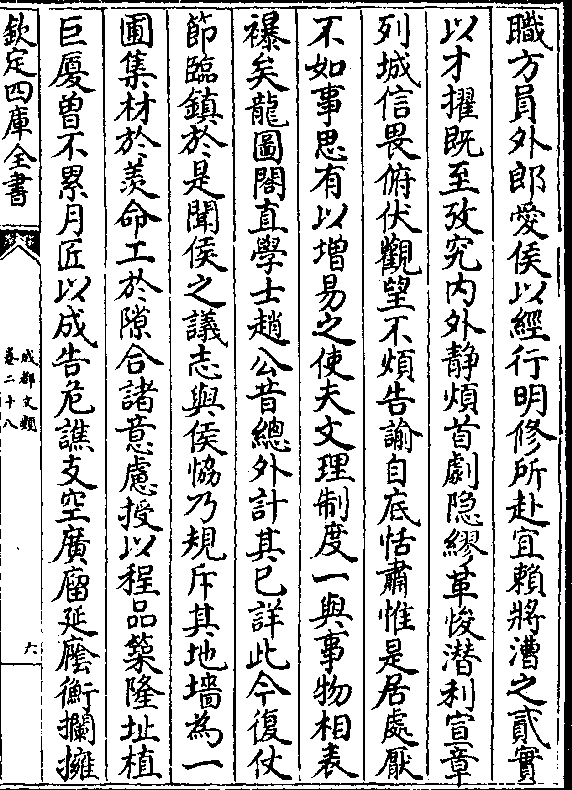 職方員外郎愛侯以經行明修所赴宜賴將漕之貳實
以才擢既至攷究内外静煩首劇隠繆革悛潜利宣章
列城信畏俯伏觀望不煩告諭自底怙肅惟是居處厭
不如事思有以增易之使夫文理制度一與事物相表
襮矣龍圖閣直學士趙公昔總外計其已詳此今復仗
節臨鎮於是聞侯之議志與侯恊乃規斥其地墻為一
圃集材於羡命工於隙合諸意慮授以程品築隆址植
巨厦曽不累月匠以成告危譙支空廣廇延廡衡攔擁
欽定四庫全書
成都文類
卷二十八
六